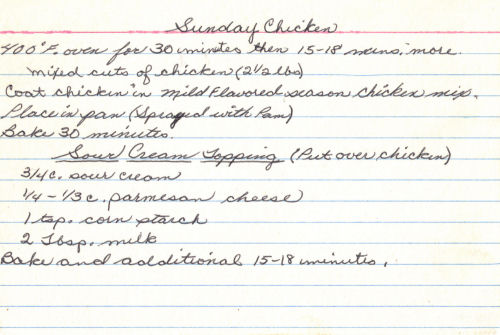 Sunday Chicken
400°F. oven for 30 minutes then 15-18 mins. more.
mixed cuts of chicken (2 1/2 lbs)
Coat chicken in mild flavored season chicken mix.
Place in pan (Sprayed with Pam)
Bake 30 minutes.
Sour Cream Topping (Put over chicken)
3/4 c. sour cream
1/4 - 1/3 c. parmesan cheese
1 tsp. corn starch
2 Tbsp. milk
Bake and additional 15-18 minutes.